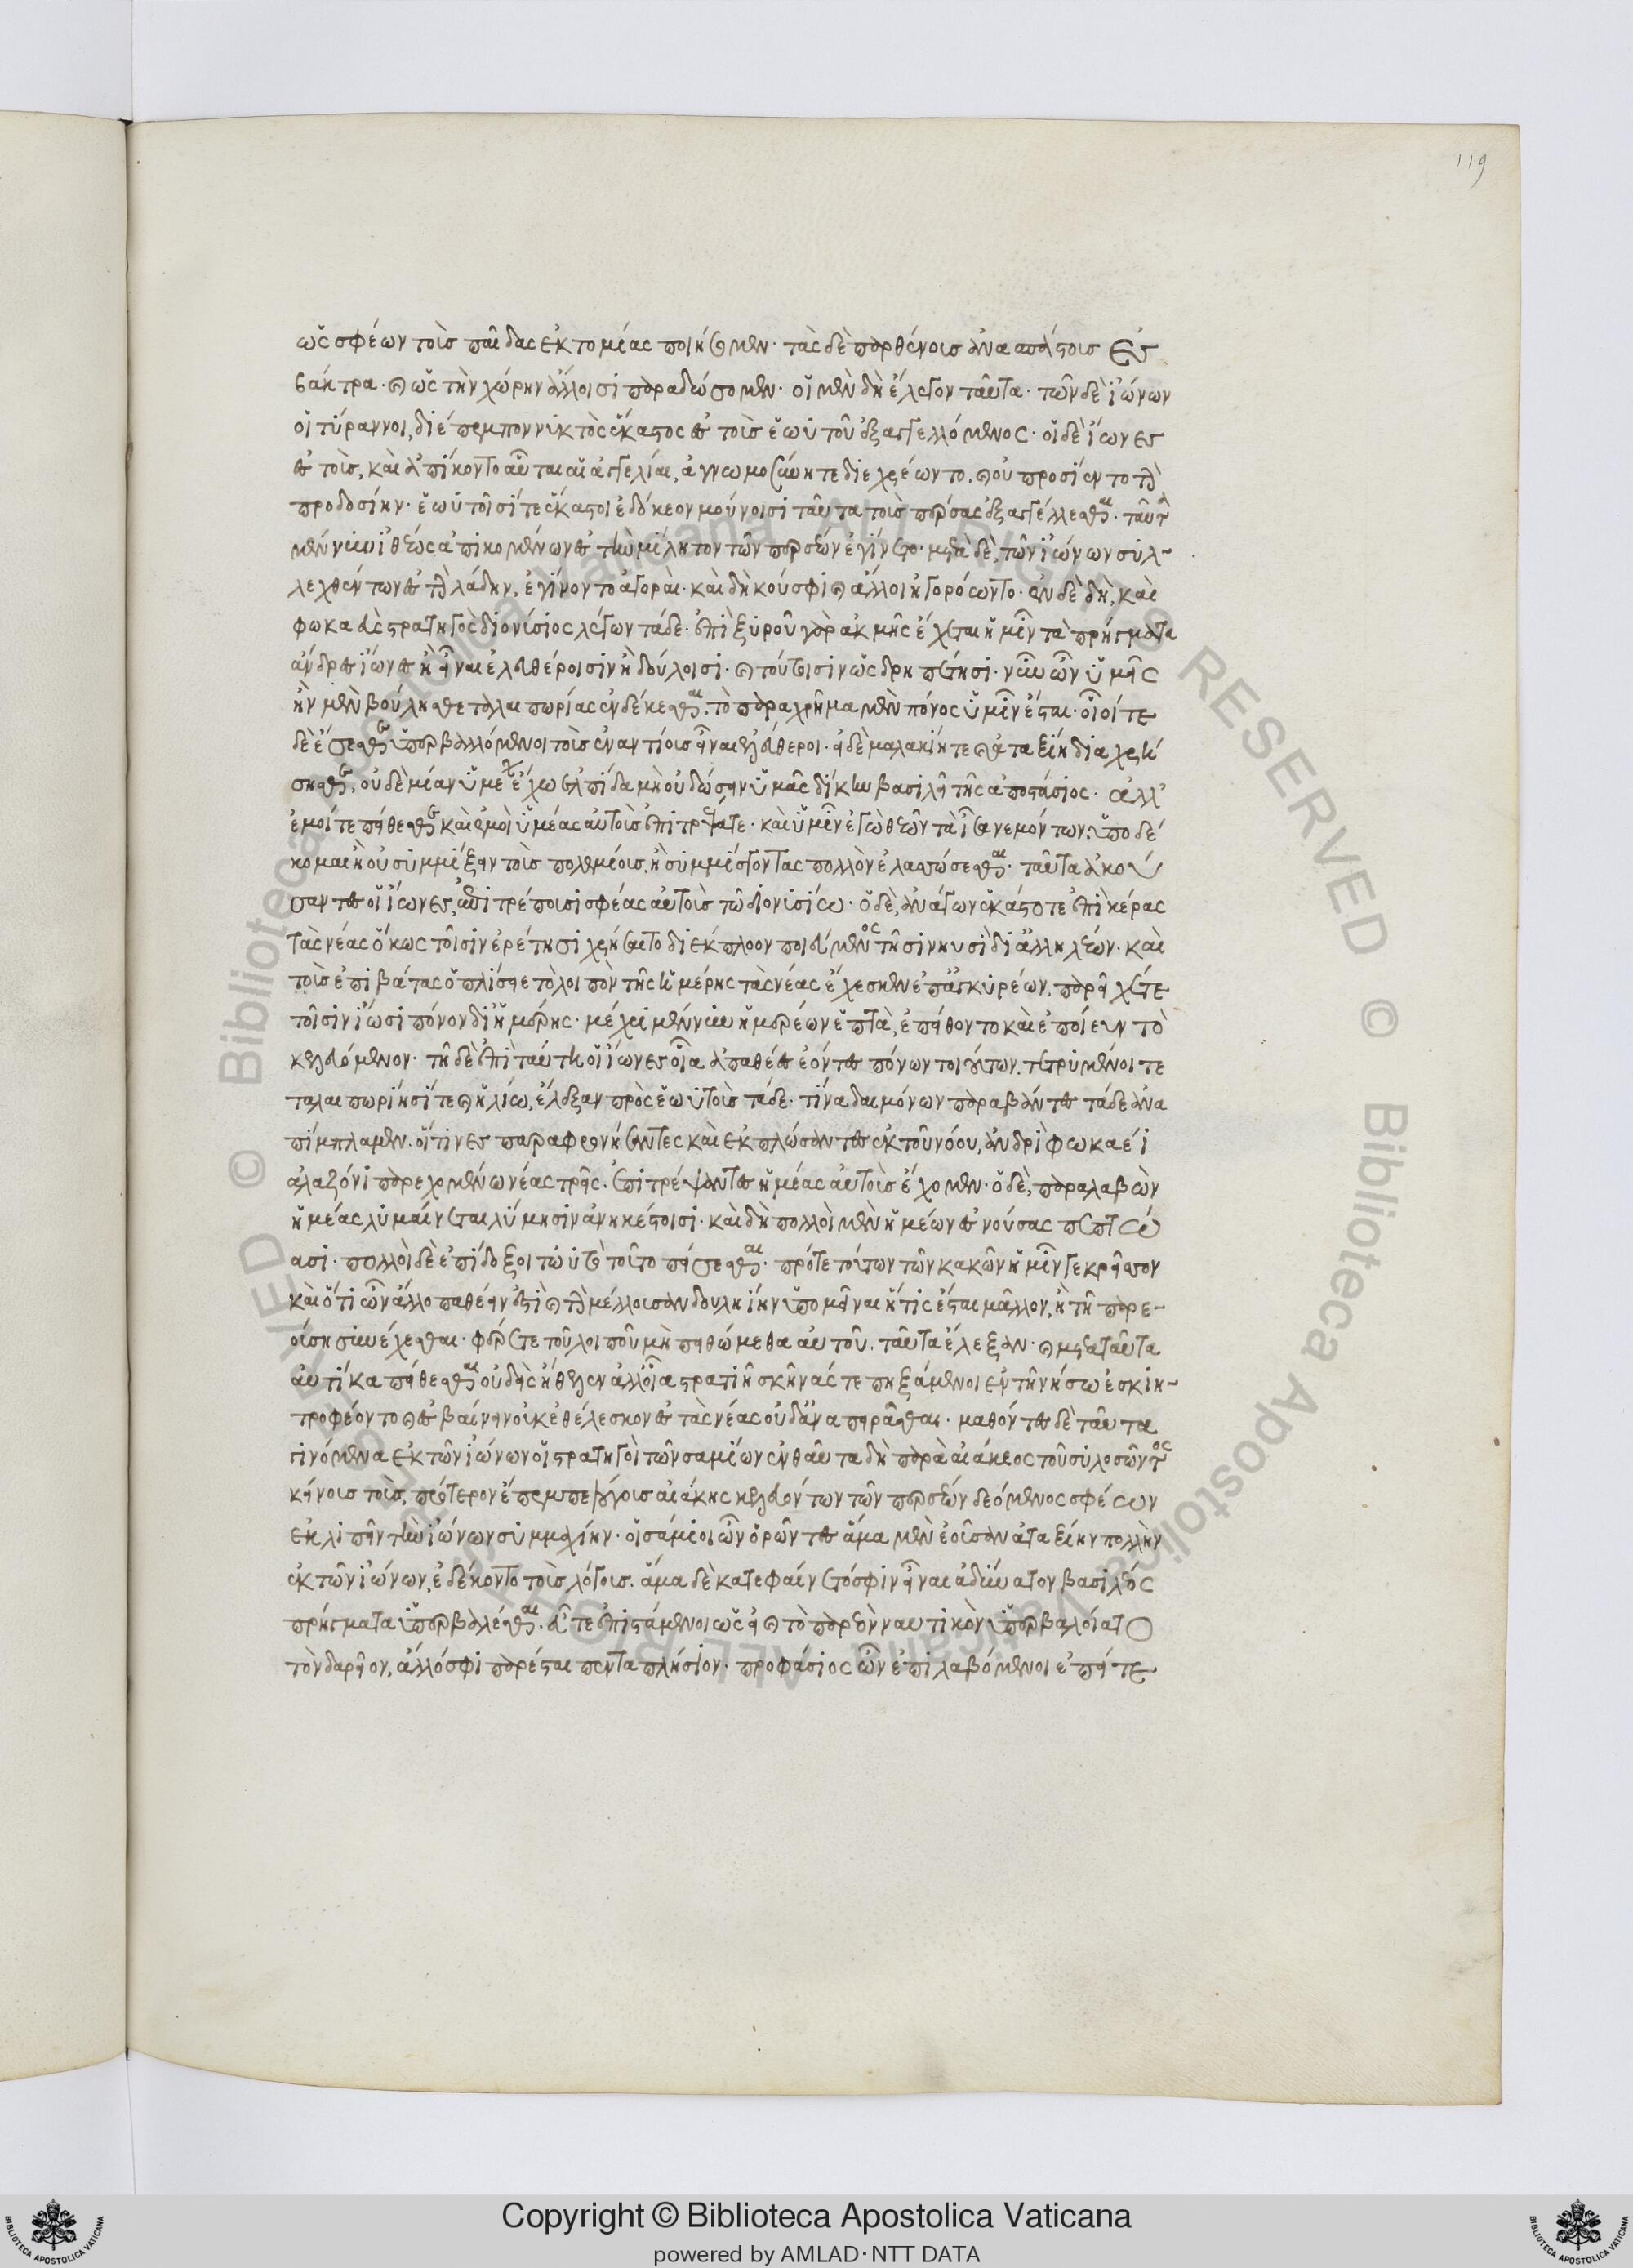 119
ὥς σφέων τοὺς παῖδας ἐκτομίας ποιήσομεν· τὰς δὲ παρθένους ἀνασπάστους ἐς
βάκτρα· καὶ ὡς τὴν χώρην ἄλλοισι παραδώσομεν· οἱ μὲν δὴ ἔλεγον ταῦτα· τῶν δὲ ἰώνων
οἱ τύραννοι, διέπεμπον νυκτὸς ἕκαστος ἐς τοὺς ἑωυτοῦ ἐξαγγελλόμενος· οἱ δὲ ἴωνες
ἐς τοὺς, καὶ ἀπίκοντο αὗται αἱ ἀγγελίαι, ἀγνωμοσύνῃ τε διεχρέωντο. καὶ οὐ προσίεντο τὴν
προδοσίην· ἑωυτοῖσί τε ἕκαστοι ἐδόκεον μούνοισι ταῦτα τοὺς πέρσας ἐξαγγέλλεσθαι· ταῦτα
μέν νυν ἰθέως ἀπικομένων ἐς τὴν μίλητον τῶν περσέων ἐγίνετο· μετὰ δὲ, τῶν ἰώνων συλ-
λεχθέντων ἐς τὴν λάδην, ἐγίνοντο ἀγοραὶ· καὶ δή κού σφι καὶ ἄλλοι ἠγορόωντο· ἐν δὲ δὴ, καὶ
φωκαεὺς στρατηγὸς διονύσιος λέγων τάδε· ἐπὶ ξυροῦ γὰρ ἀκμῆς ἔχεται ἡμῖν τὰ πρήγματα
ἄνδρες ἴωνες ἢ εἶναι ἐλευθέροισιν ἢ δούλοισι· καὶ τούτοισιν ὡς δρηπέτῃσι· νῦν ὦν ὑμεῖς
ἢν μὲν βούλησθε ταλαιπωρίας ἐνδέκεσθαι, τὸ παραχρῆμα μὲν πόνος ὑμῖν ἔσται· οἷοί τε
δὲ ἔσεσθε ὑπερβαλλόμενοι τοὺς ἐναντίους εἶναι ἐλεύθεροι· εἰ δὲ μαλακίῃ τε καὶ ἀταξίῃ διαχρή
σησθε, οὐδεμίαν ὑμέων ἔχω ἐλπίδα μὴ οὐ δώσειν ὑμᾶς δίκην βασιλεῖ τῆς ἀποστάσιος· ἀλλ'
ἐμοί τε πείθεσθε καὶ ἐμοὶ ὑμέας αὐτοὺς ἐπιτρέψατε· καὶ ὑμῖν ἐγὼ θεῶν τὰ ἶσα νεμόντων, ὑποδέ
κομαι ἢ οὐ συμμίξειν τοὺς πολεμίους, ἢ συμμίσγοντας πολλὸν ἐλασσώσεσθαι· ταῦτα ἀκού
σαντες οἱ ἴωνες, ἐπιτρέπουσι σφέας αὐτοὺς τῶ διονυσίω· ὁ δὲ, ἀνάγων ἑκάστοτε ἐπὶ κέρας
τὰς νέας ὅκως τοῖσιν ἐρέτῃσι χρήσαιτο διέκπλοον ποιεύμενος τῇσι νηυσὶ δι' ἀλληλέων· καὶ
τοὺς ἐπιβάτας ὁπλίσειε τὸ λοιπὸν τῆς ἡμέρης τὰς νέας ἔχεσκε ἐπ' ἀγκυρέων, παρεῖχέ τε
τοῖσιν ἴωσι πόνον δι' ἡμέρης· μέχρι μέν νυν ἡμερέων ἑπτὰ, ἐπείθοντο καὶ ἐποίευν τὸ
κελευόμενον· τῇ δὲ ἐπὶ ταύτῃ οἱ ἴωνες οἷα ἀπαθέες ἐόντες πόνων τοιούτων, τετρυμένοι τε
ταλαιπωρίῃσί τε καὶ ἡλίω, ἔλεξαν πρὸς ἑωυτοὺς τάδε· τίνα δαιμόνων παραβάντες τάδε ἀνα
πίμπλαμεν. οἵτινες παραφρονήσαντες καὶ ἐκπλώσαντες ἐκ τοῦ νόου, ἀνδρὶ φωκαέϊ
ἀλαζόνι παρεχομένω νέας τρεῖς. ἐπιτρέψαντες ἡμέας αὐτοὺς ἔχομεν· ὁ δὲ, παραλαβὼν
ἡμέας λυμαίνεται λύμῃσιν ἀνηκέστοισι· καὶ δὴ πολλοὶ μὲν ἡμέων ἐς νούσους πεπτώ
ασι· πολλοὶ δὲ ἐπίδοξοι τὠυτὸ τοῦτο πείσεσθαι· πρό τε τούτων τῶν κακῶν ἡμῖν γε κρεῖσσον
καὶ ὅτι ὦν ἄλλο παθέειν ἐστὶ καὶ τὴν μέλλουσαν δουληίην ὑπομεῖναι ἥτις ἔσται μᾶλλον, ἢ τῇ παρε-
ούσῃ συνέχεσθαι. φέρετε τοῦ λοιποῦ μὴ πειθώμεθα αὐτοῦ. ταῦτα ἔλεξαν· καὶ μετὰ ταῦτα
αὐτίκα πείθεσθαι οὐδεὶς ἤθελεν ἀλλ' οἷα στρατιὴ σκηνάς τε πηξάμενοι ἐν τῇ νήσω ἐσκιη-
τροφέοντο καὶ ἐσβαίνειν οὐκ ἐθέλεσκον ἐς τὰς νέας οὐδ' ἀναπειρᾶσθαι· μαθόντες δὲ ταῦτα
γινόμενα ἐκ τῶν ἰώνων οἱ στρατηγοὶ τῶν σαμίων ἐνθαῦτα δὴ παρὰ αἰάκεος τοῦ συλοσῶντος
κείνους τοὺς, πρότερον ἔπεμπε λόγους αἰάκης κελευόντων τῶν περσέων δεόμενος σφέων
ἐκλιπεῖν τὴν ἰώνων συμμαχίην· οἱ σάμιοι ὦν ὁρῶντες ἅμα μὲν ἐοῦσαν ἀταξίην πολλὴν
ἐκ τῶν ἰώνων, ἐδέκοντο τοὺς λόγους. ἅμα δὲ κατεφαίνετό σφιν εἶναι ἀδύνατον βασιλέος
πρήγματα ὑπερβαλέσθαι. εὖ τε ἐπιστάμενοι ὡς εἰ καὶ τὸ παρεὸν ναυτικὸν ὑπερβαλοίατο
τὸν δαρεῖον, ἄλλό σφι παρέσται πενταπλήσιον· προφάσιος ὦν ἐπιλαβόμενοι ἐπεί τε
Copyright © Biblioteca Apostolica Vaticana
powered by AMLAD·NTT DATA